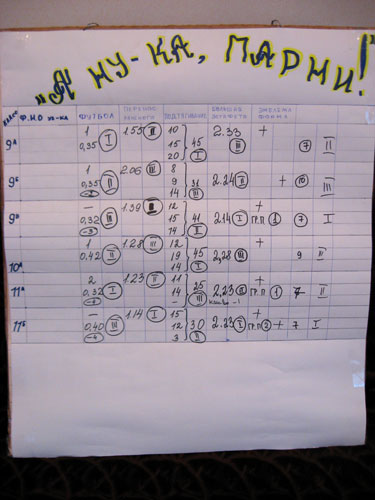 "А НУ-КА, ПАРНИ!"
класс Ф.И.О уч-ка ФУТБОЛ ПОДТЯГИВАНИЕ БОЛЬШАЯ ЭСТАФЕТА ЭМБЛЕМА ФОРМА
1 1.55 III 10 2.33 +
9А 0,35 I 15 45 III 7 II
20 I
1 2.06 III 8
9Б 0,35 II 9 31 2.24 II + 10 III
14 III
— 1.39 II 12 +
9В 0,32 III 15 41 2.14 I ГР.П 1 7 I
-3 14 II
1 1.28 III 12 +
0,42 II 19 45 2,28 III 9 II
10А 14 I
2 1.23 II 11 +
11А 0,32 I 14 25 2,23 II ГР.П 1 7 II
— III
— 1.14 I 15 +
11Б 0,40 III 12 30 2.23 I ГР.П 2 + 7 I
-4 3 II